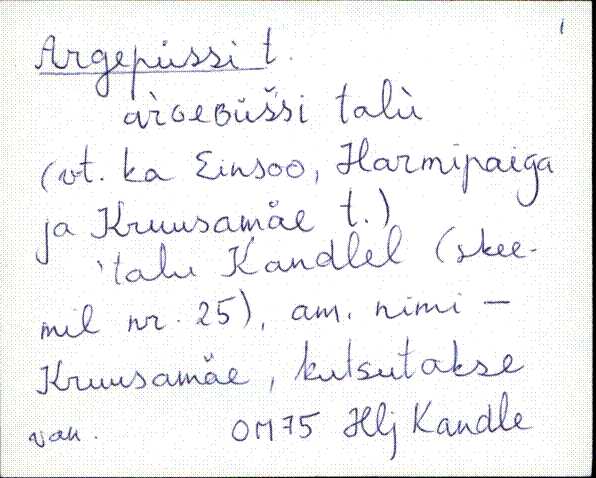 1
Argepüssi t.
àrɢᴇʙüšši talù
(vt. ka Einsoo, Harmipaiga
ja Kruusamäe t.)
'talu Kandlel (skee-
mil nr. 25), am. nimi –
Kruusamäe, kutsutakse
van. OM75 Hlj Kandle